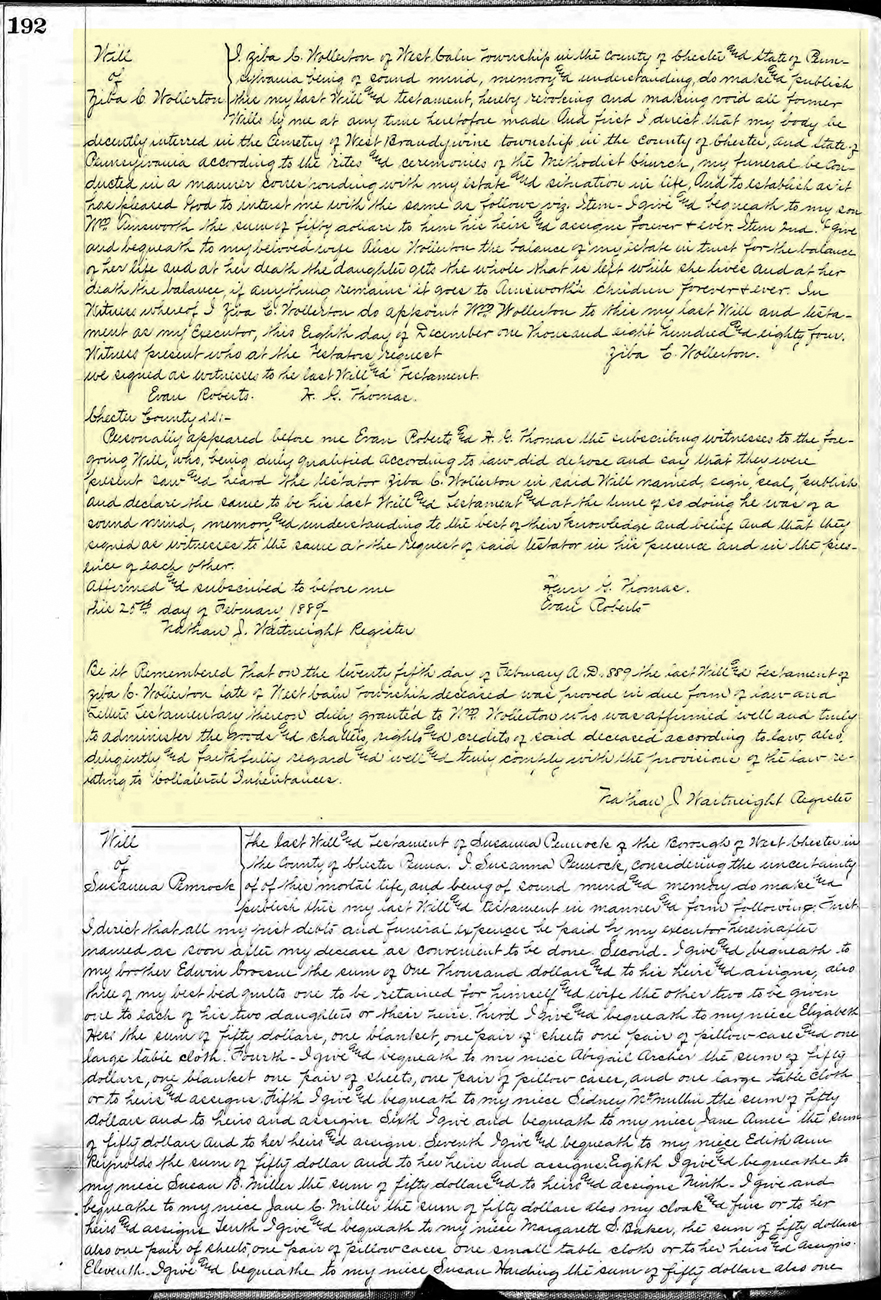 192
Will
of
Ziba C Wollerton
I, Ziba C. Wollerton of West Caln Township in the County of Chester and State of Penn-
sylvania being of sound mind, memory and understanding, do make and publish
this my last Will and testament, hereby revoking and making void all former
Wills by me at any time heretofore made And first I direct that my body be
decently interred in the Cemetry of West Brandywine township in the County of Chester, and State of
Pennsylvania according to the rites and ceremonies of the Methodist Church, my funeral be Con-
ducted in a manner corresponding with my estate and situation in life, And to establish as it
has pleased God to intrust me with the same as follows viz. Item - I give and bequeath to my son
Wm Ainsworth the sum of fifty dollars to him his heirs and assigns forever & ever. Item 2nd. I give
and bequeath to my beloved wife Alice Wollerton the balance of my estate in trust for the balance
of her life and at her death the daughter gets the whole that is left while she lives and at her
death the balance, if anything remains it goes to Ainsworth's children forever & ever. In
Witness whereof I Ziba C. Wollerton do appoint Wm Wollerton to this my last Will and testa-
ment as my Executor, this Eighth day of December one thousand eight hundred and eighty four.
Witness present who at the Testators request
Ziba C. Wollerton.
we signed as witnesses to he last Will and Testament.
Evan Roberts. H. G. Thomas.
Chester County ss:-
Personally appeared before me Evan Roberts and H. G. Thomas the subscribing witnesses to the fore-
going Will, who, being duly qualified according to law did depose and say that they were
present saw and heard the testator Ziba C. Wollerton in said Will named, sign, seal, publish
and declare the same to be his last Will and Testament and at the time of so doing he was of a
sound mind, memory and understanding to the best of their knowledge and belief And that they
signed as witnesses to the same at the request of said testator in his presence and in the pres-
ence of each other.
Affirmed and subscribed to before me
Henry G. Thomas.
this 25th day of February 1889-
Evan Roberts
Nathan J. Wartnright Register
Be it Remembered that on the twenty fifth day of February A.D. 889 the last Will and Testament of
Ziba C. Wollerton late of West Caln Township deceased was proved in due form of law and
Letters Testamentary thereon dully granted to Wm Wollerton who was affirmed well and truly
to administer the goods and chattels, rights and credits of said deceased according to law, also
diligently and faithfully regard and well and truly comply with the provisions of the law re-
lating to Collateral Inheritances.
Nathan J Wartnright Register
Will
of
Susanna Pennock
The last Will and Testament of Susanna Pennock of the Borough of West Chester in
the County of Chester Penna. I, Susanna Pennock, considering the uncertainty
of of this mortal life, and being of sound mind and memory do make and
publish this my last Will and testament in manner and form following. First.
I direct that all my just debts and funeral expences be paid by my executor hereinafter
named as soon after my decease as convenient to be done. Second - I give and bequeath to
my brother Edwin the sum of One Thousand dollars and to his heirs and assigns, also
three of my best bed quilts one to be retained for himself and wife the other two to be given
one to each of his two daughters or their heirs. Third I give and bequeath to my niece Elizabeth
Hess the sum of fifty dollars, one blanket, one pair of sheets one pair of pillow-cases and one
large table cloth. Fourth - I give and bequeath to my niece Abigail Archer the sum of fifty
dollars, one blanket one pair of sheets, one pair of pillow cases, and one large table cloth
or to heirs and assigns. Fifth I give and bequeath to my niece Sidney McMullin the sum of fifty
Dollars and to heirs and assigns Sixth I give and bequeath to my niece Jane Amie the sum
of fifty dollars and to her heirs and assigns. Seventh I give and bequeath to my niece Edith Ann
Reynolds the sum of fifty dollar and to her heirs and assigns. Eighth I give and bequeathe to
my niece Susan B. Miller the sum of fifty dollars and to heirs and assigns Ninth - I give and
bequeathe to my niece Jane C. Miller the sum of fifty dollars also my cloak and furs or to her
heirs and assigns Tenth I give and bequeath to my niece Margarett S. Baker, the sum of fifty dollars
also one pair of sheets, one pair of pillow cases one small table cloth or to her heirs and assigns.
Eleventh. I give and bequeathe to my niece Susan Harding the sum of fifty dollars also one